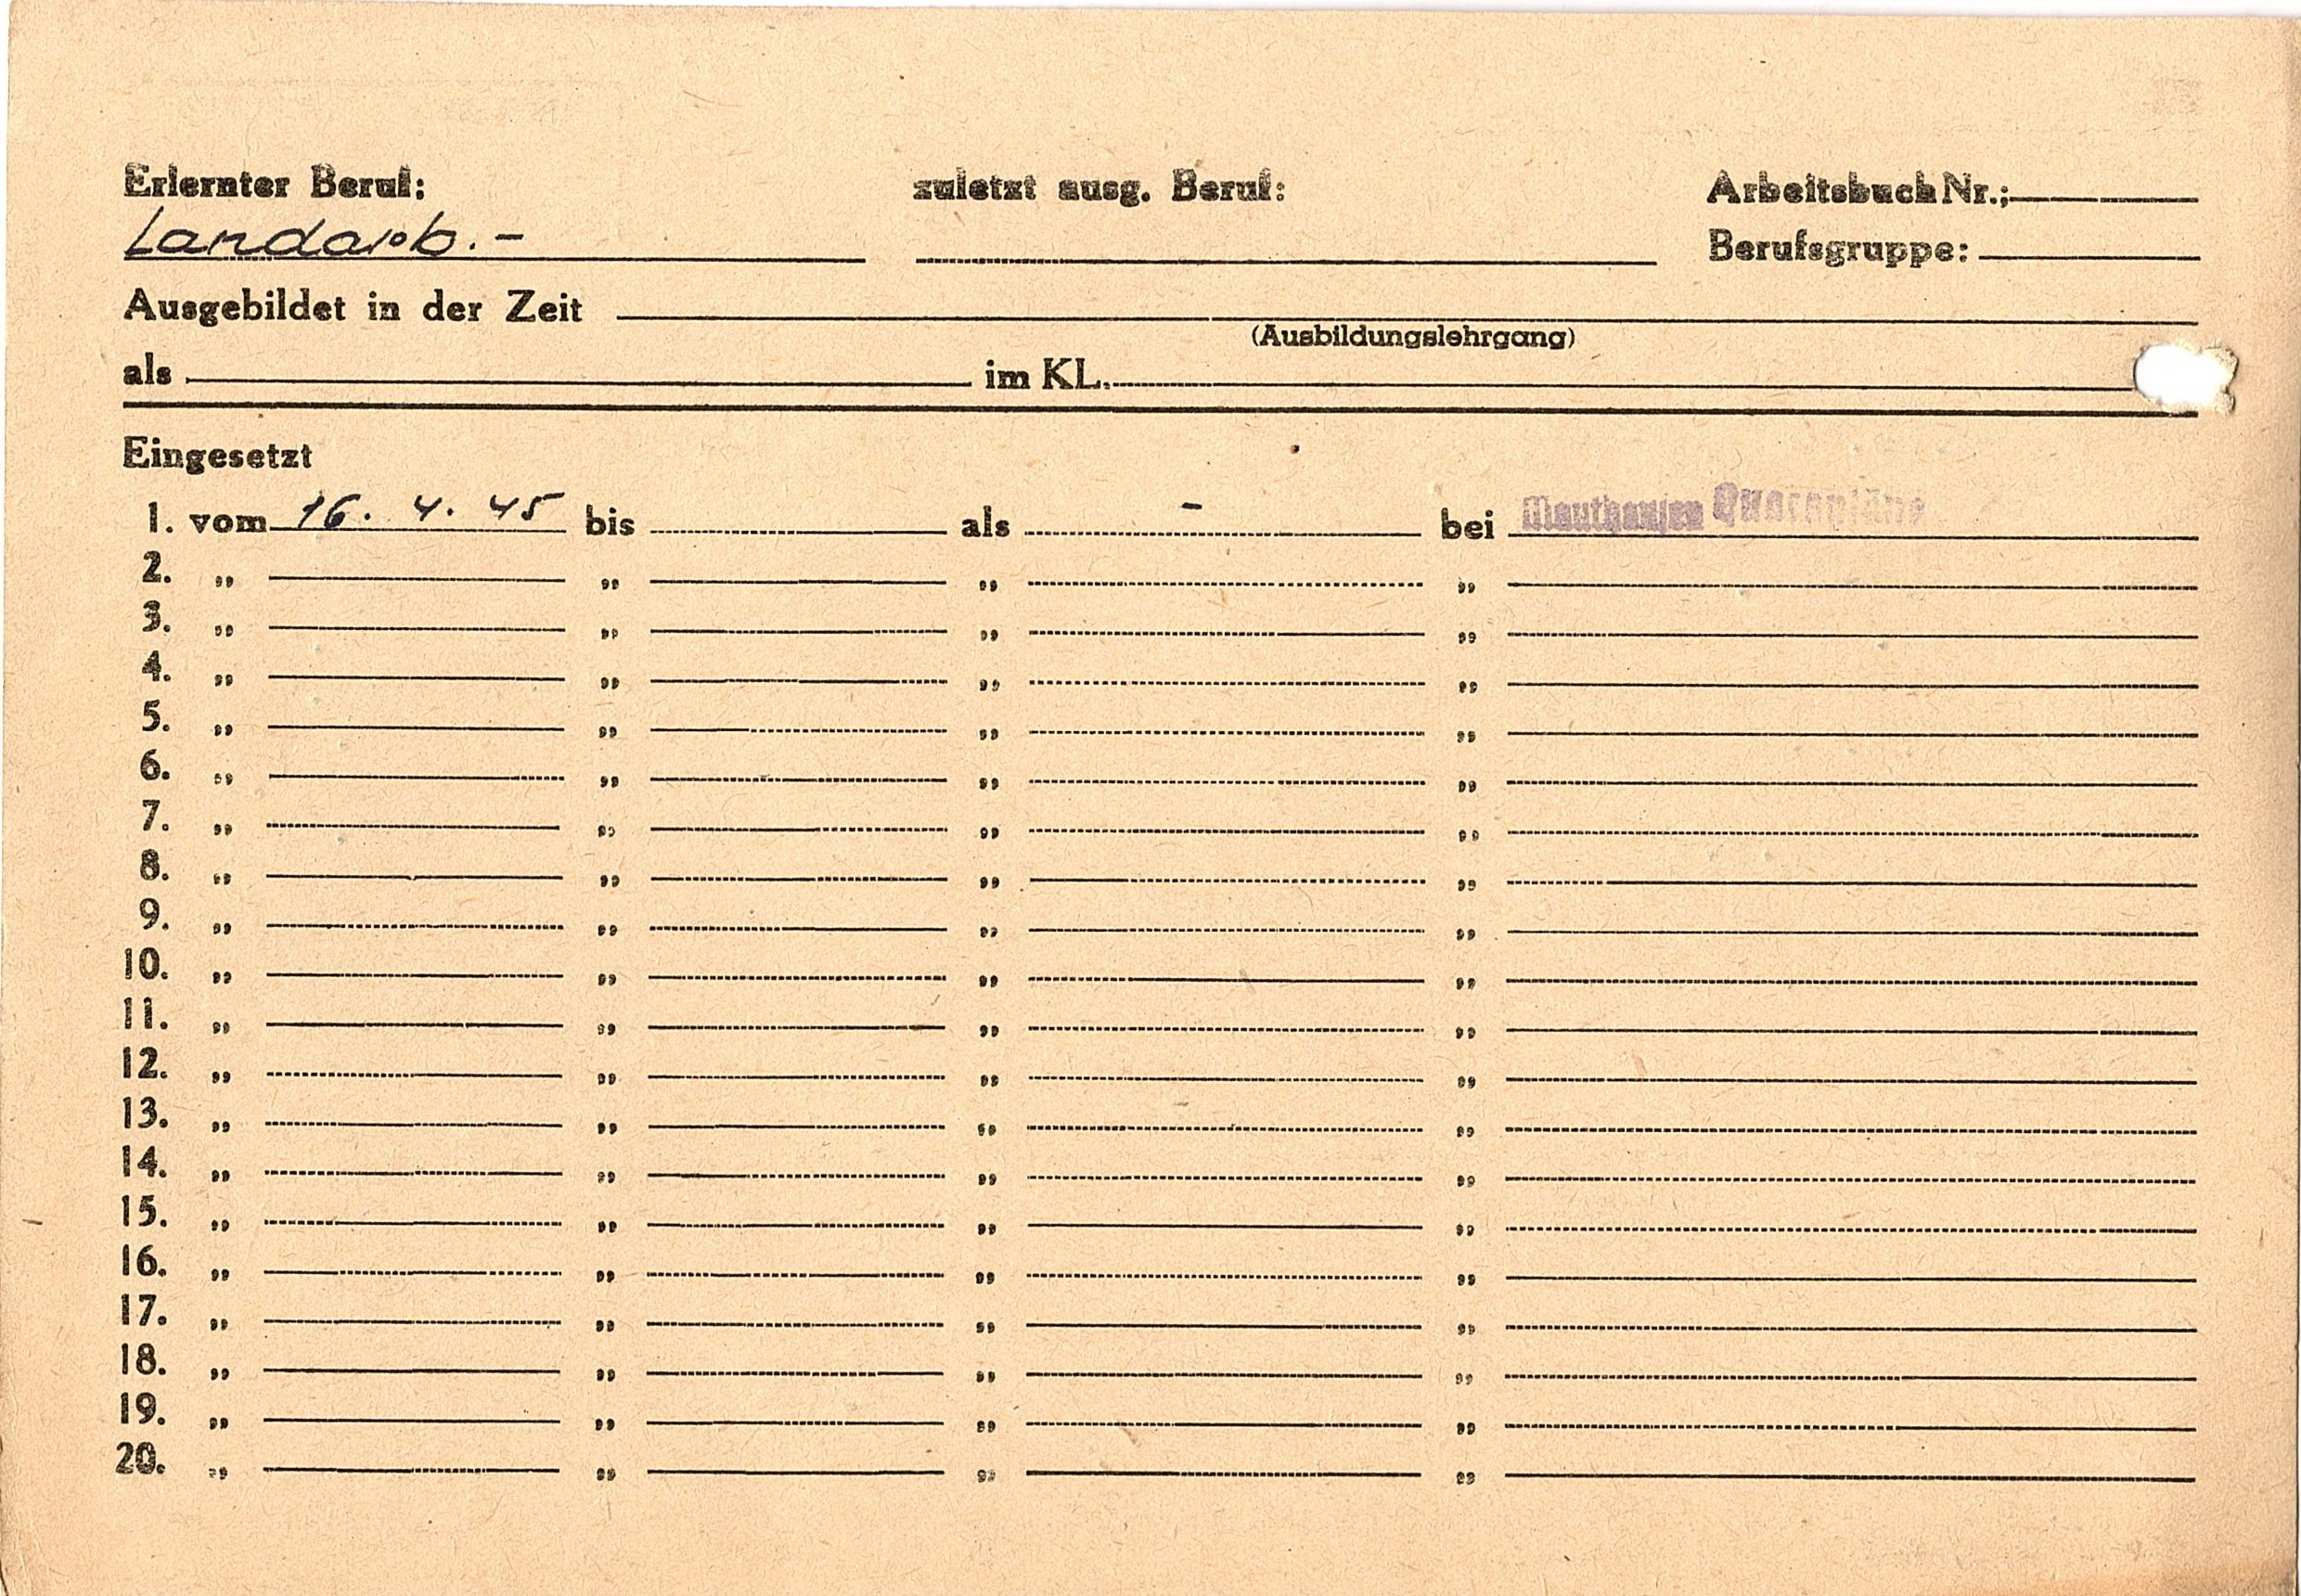 Erlernter Beruf: zuletzt ausg. Beruf: Arbeitsbuch Nr.:
Landarb. -
Berufsgruppe:
Ausgebildet in der Zeit
(Ausbildungslehrgang)
als im KL.
Eingesetzt
1. vom 16. 4. 45 bis als - bei Mauthausen Quarantäne
2. „ „ „ „
3. „ „ „ „
4. „ „ „ „
5. „ „ „ „
6. „ „ „ „
7. „ „ „ „
8. „ „ „ „
9. „ „ „ „
10. „ „ „ „
11. „ „ „ „
12. „ „ „ „
13. „ „ „ „
14. „ „ „ „
15. „ „ „ „
16. „ „ „ „
17. „ „ „ „
18. „ „ „ „
19. „ „ „ „
20. „ „ „ „